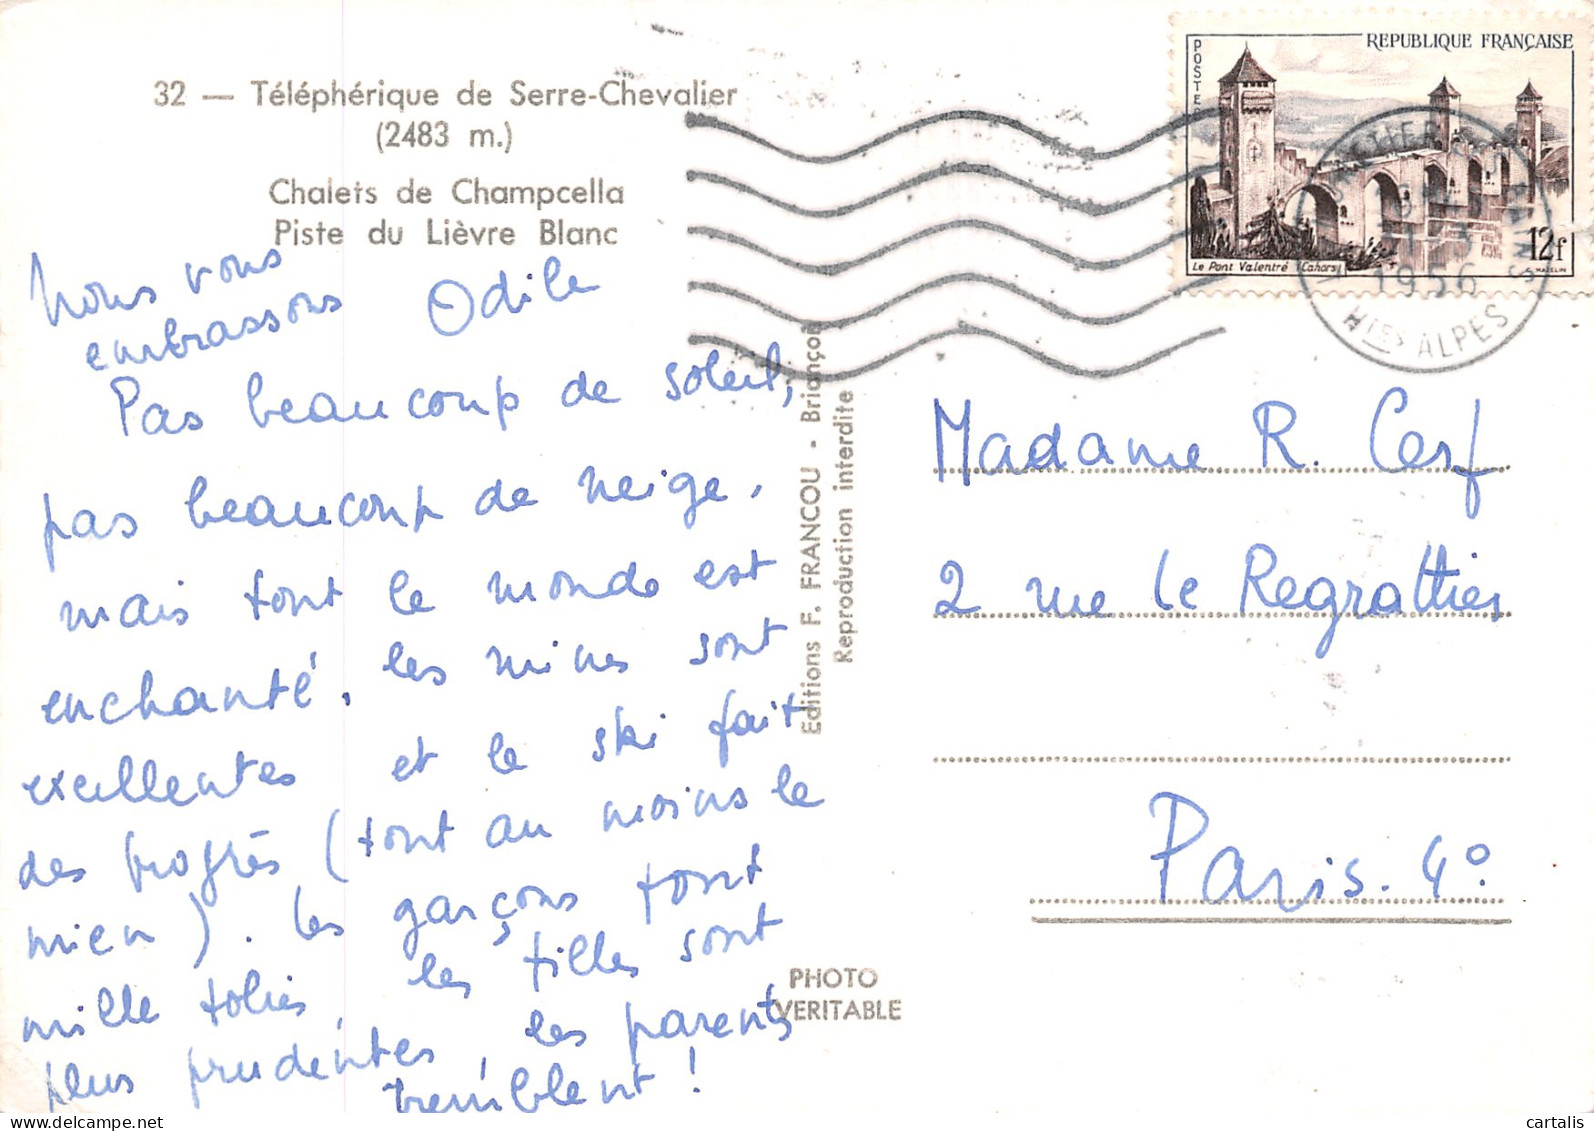 32 — Téléphérique de Serre-Chevalier
(2483 m.)
Chalets de Champcella
Piste du Lièvre Blanc
Nous vous
embrassons Odile
Pas beaucoup de soleil,
pas beaucoup de neige,
mais tout le monde est
enchanté. les mines sont
excellentes et le ski fait
des progrès (tout au moins le
mien). les garçons font
mille folies, les filles sont
plus prudentes, les parents
tremblent !
Editions F. FRANCOU - Briançon
Reproduction interdite
PHOTO
VERITABLE
POSTES
REPUBLIQUE FRANÇAISE
Le Pont Valentré (Cahors)
12f
1956
Htes ALPES
Madame R. Cerf
2 rue le Regrattier
Paris. 4º
www.delcampe.net
cartalis